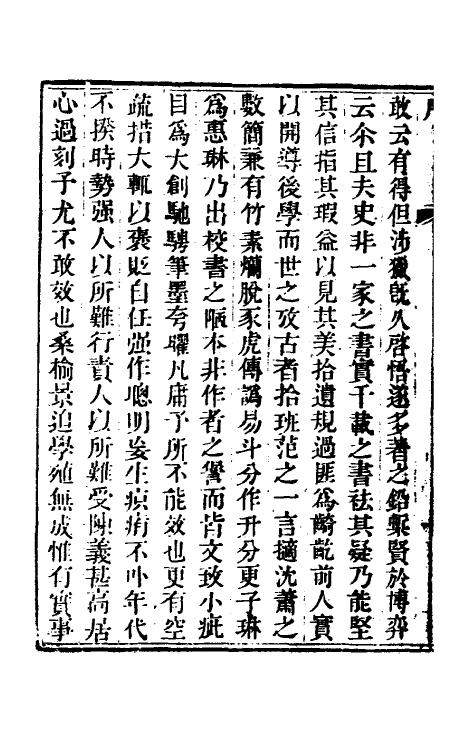 敢云有得但涉獵旣久啓悟遂多著之鉛槧賢於博弈
云尒且夫史非一家之書實千載之書祛其疑乃能堅
其信指其瑕益以見其美拾遺規過匪爲齮齕前人實
以開導後學而世之攷古者拾班范之一言擿沈蕭之
數簡兼有竹素爛脫豕虎傳譌易斗分作升分更子琳
爲惠琳乃出校書之陋本非作者之諐而皆文致小疵
目爲大創馳騁筆墨夸曜凡庸予所不能效也更有空
疏措大輒以褒貶自任强作聰明妄生㾗痏不卟年代
不揆時勢强人以所難行責人以所難受陳義甚高居
心過刻予尤不敢效也桑榆景迫學殖無成惟有實事